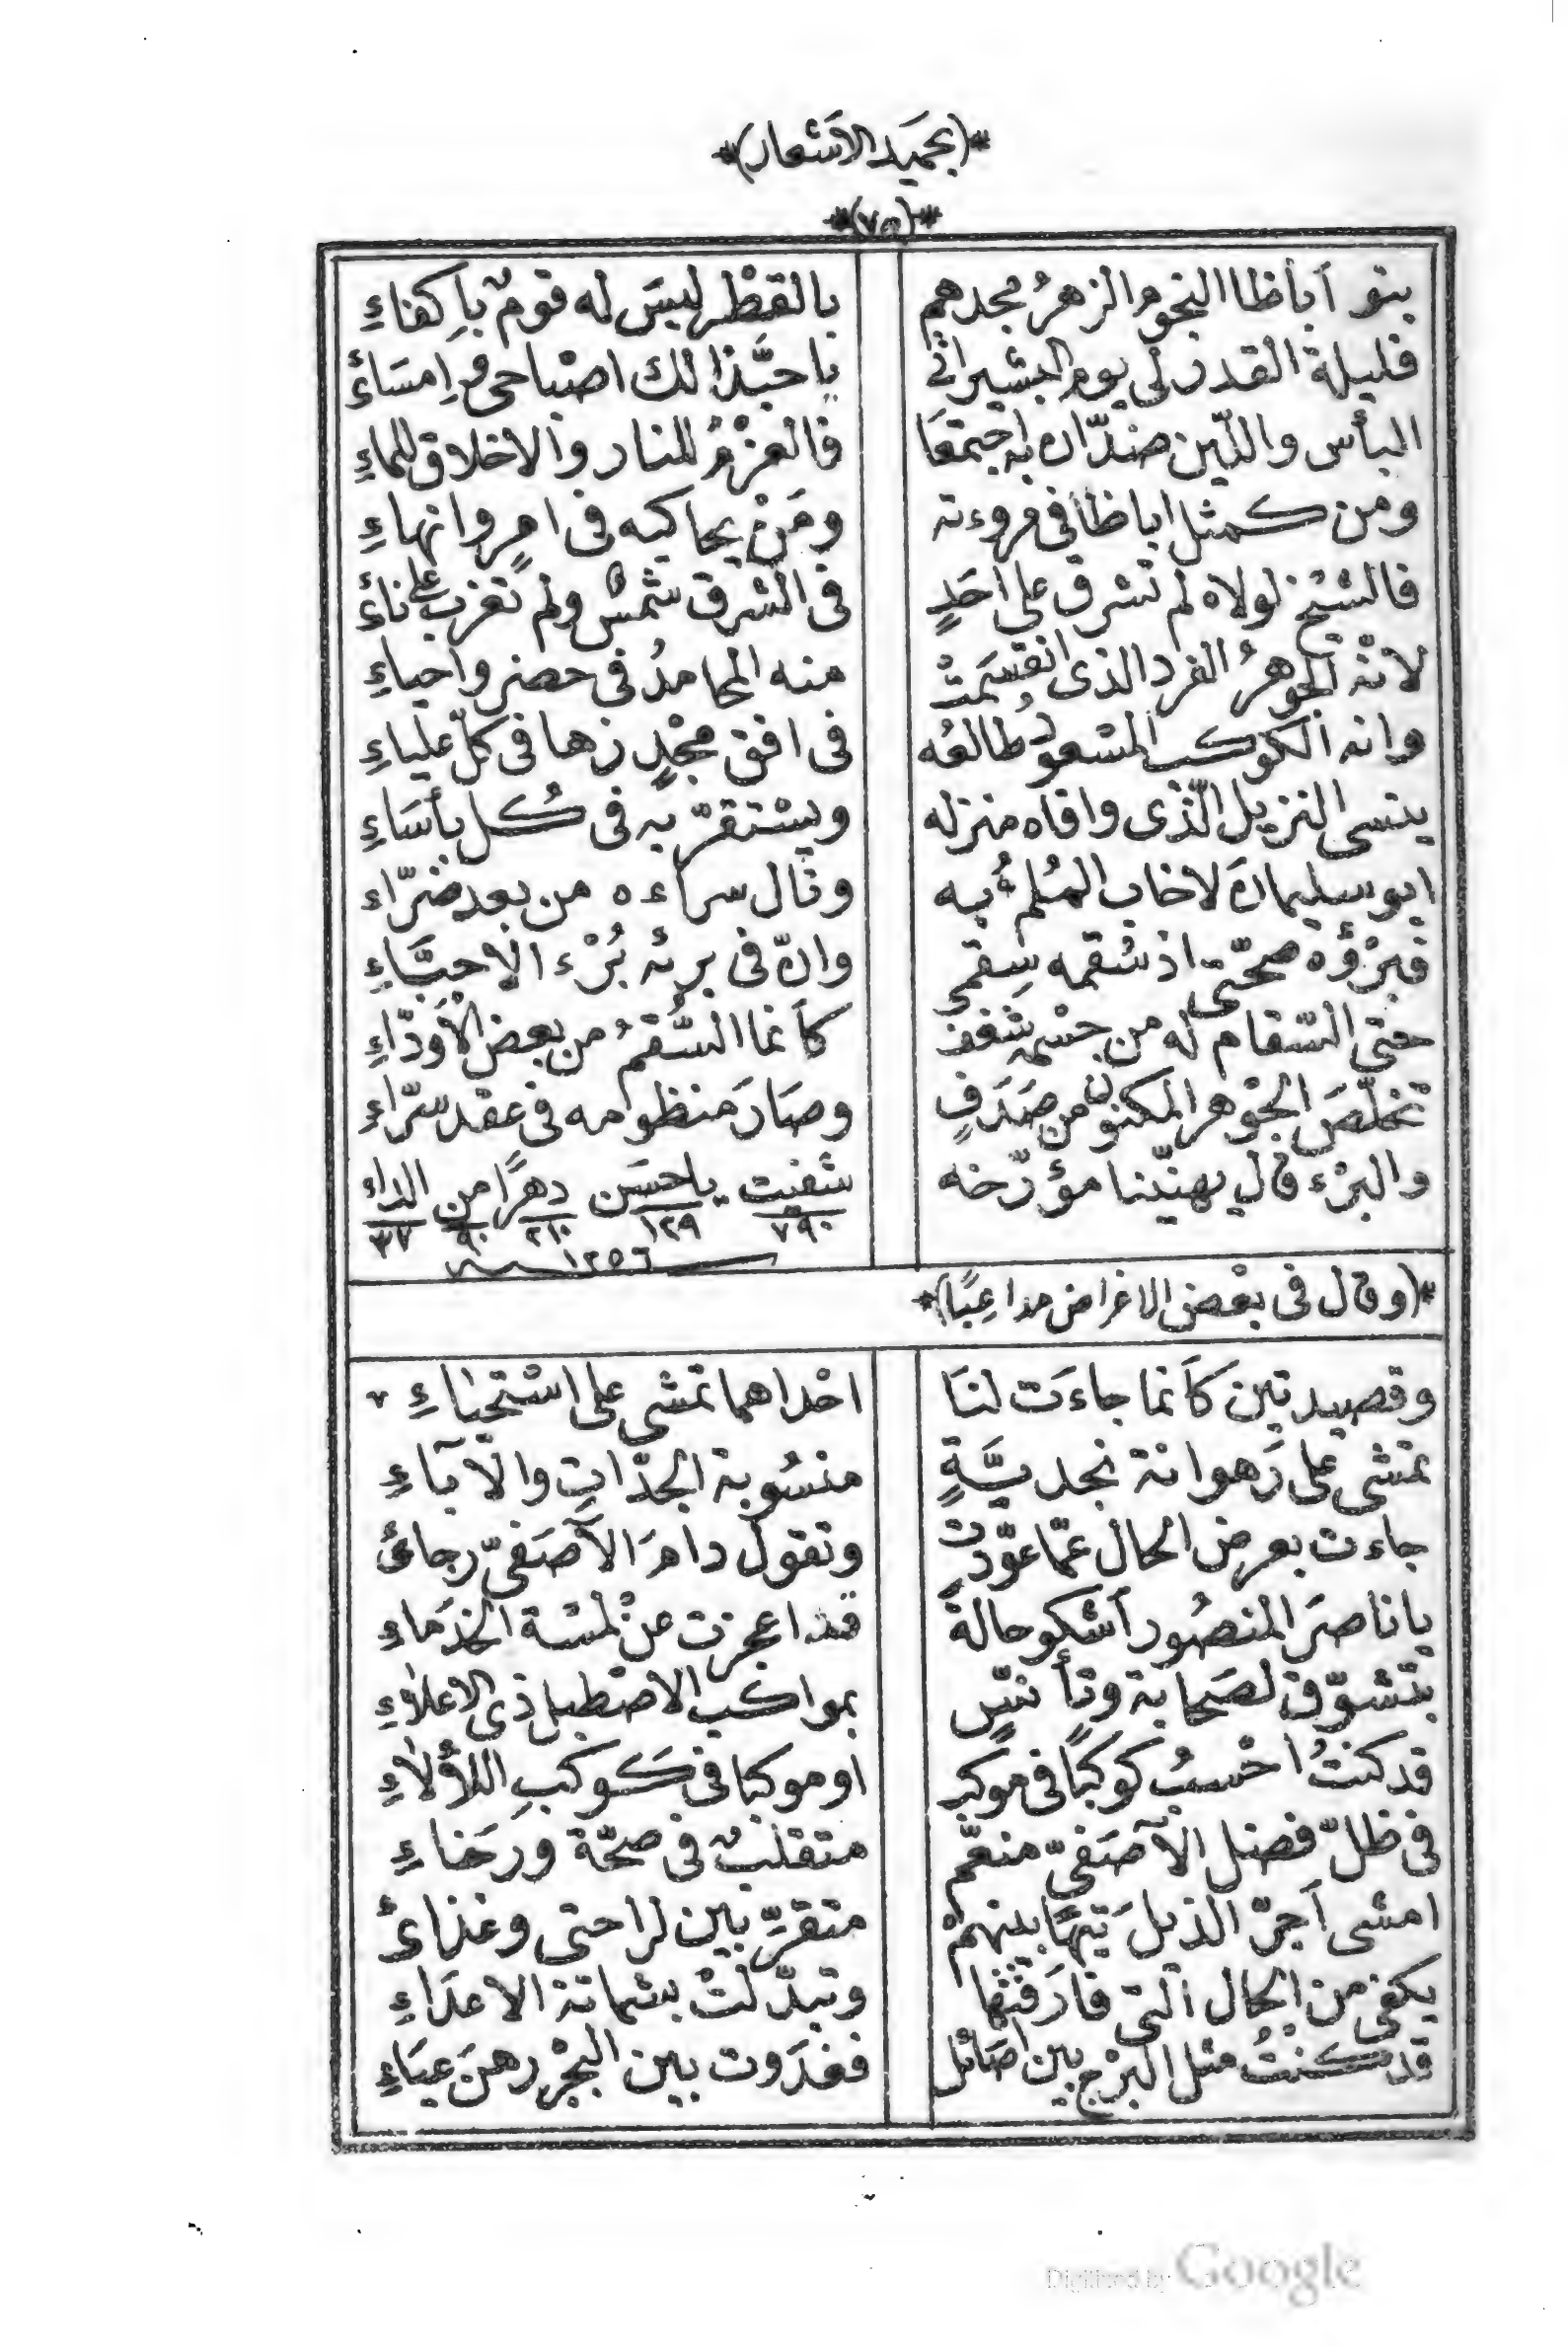 *(بحميد الاشعار)*
*(٧٥)*
بنو أباظا النجوم الزهرُ مجدهم بالقطْر ليسَ له قومٌ بإكفاءِ
فليلة القدر لي يوم البشير اتى ياحبَّذا لك اصْباحى وإمسَائ
البأس واللّين ضدّان به اجتمعَا فالعزْمُ للنار والاخلاق للماءِ
ومن كمثل اباظا في مروءته ومَنْ يحاكيه فى امرٍ وانهاءِ
فالشيخ لولاه لم تشرق على احَدٍ فى الشرق شمسٌ ولم تغرب على نائ
لانّه الجوهرُ الفرد الذى انقسَمتْ منه المحامدُ فى حضر واحياءِ
وانه الكوكب المسعود طالعُه فى افق مجْدٍ زها فى كلّ علياءِ
ينسى النزيل الّذى وافاه منزله ويسْتقرّ به فى كُل بأسَاءِ
ابو سليمان لاخاب المُلمُ به ونال سراءه من بعد ضرّاء
فبرْؤه صحّتى اذ سُقمه سقمى وانّ فى برئه بُرْء الاحبَّاءِ
حتى السّقام له من جسْمه شغف كأنما السُّقمُ من بعض الأودّاءِ
تخلّصَ الجوْهر المكنون من صَدَفٍ وصَارَ منظومه فى عقد سرّاءِ
والبرْء قال يهنّينا مؤرّخه شفيت ياحسَن دهرًا من الداء
٧٩٠ ١٢٩ ٢١٠ ٩٠ ٣٧
١٢٥٦
*(وقال فى بعْض الاغراض مداعِبًا)*
وقصيدتين كأنما جاءَت لنَا احْداهما تمشى على اسْتحْياءِ
تمشى على رَهوانة نجديَّةٍ منسُوبة الجدّاتِ والآباءِ
جاءت بعرض الحال عمّا عوّدت وتقول دامَ الآصَفىّ رجائ
يا ناصرَ المنصُور أشكو حالةً قد اعجزت عنْ لمْسَة الخدَماءِ
بتشوّق لصَحابة وتأنّسٍ بمواكب الاصْطبل ذى الاعلاءِ
قد كنتُ احْسبُ كوكبًا فى موكب او موكبا فى كَوكبِ اللألاءِ
فى ظلّ فضل الآصَفىّ منعّم متقلبٌ فى صحّة ورَخاءِ
امشى أجرّ الذيلَ تيهًا بينهمْ متقرّب بين لراحتى وغذائ
يكفى من الحال التى فارَقتْها وتبدّلتْ بشماتة الاعدَاءِ
قد كنتُ مثل البرْج بين اصَائل فغدَوت بين البجْر رهنَ عيَاءِ
Digitized by Google